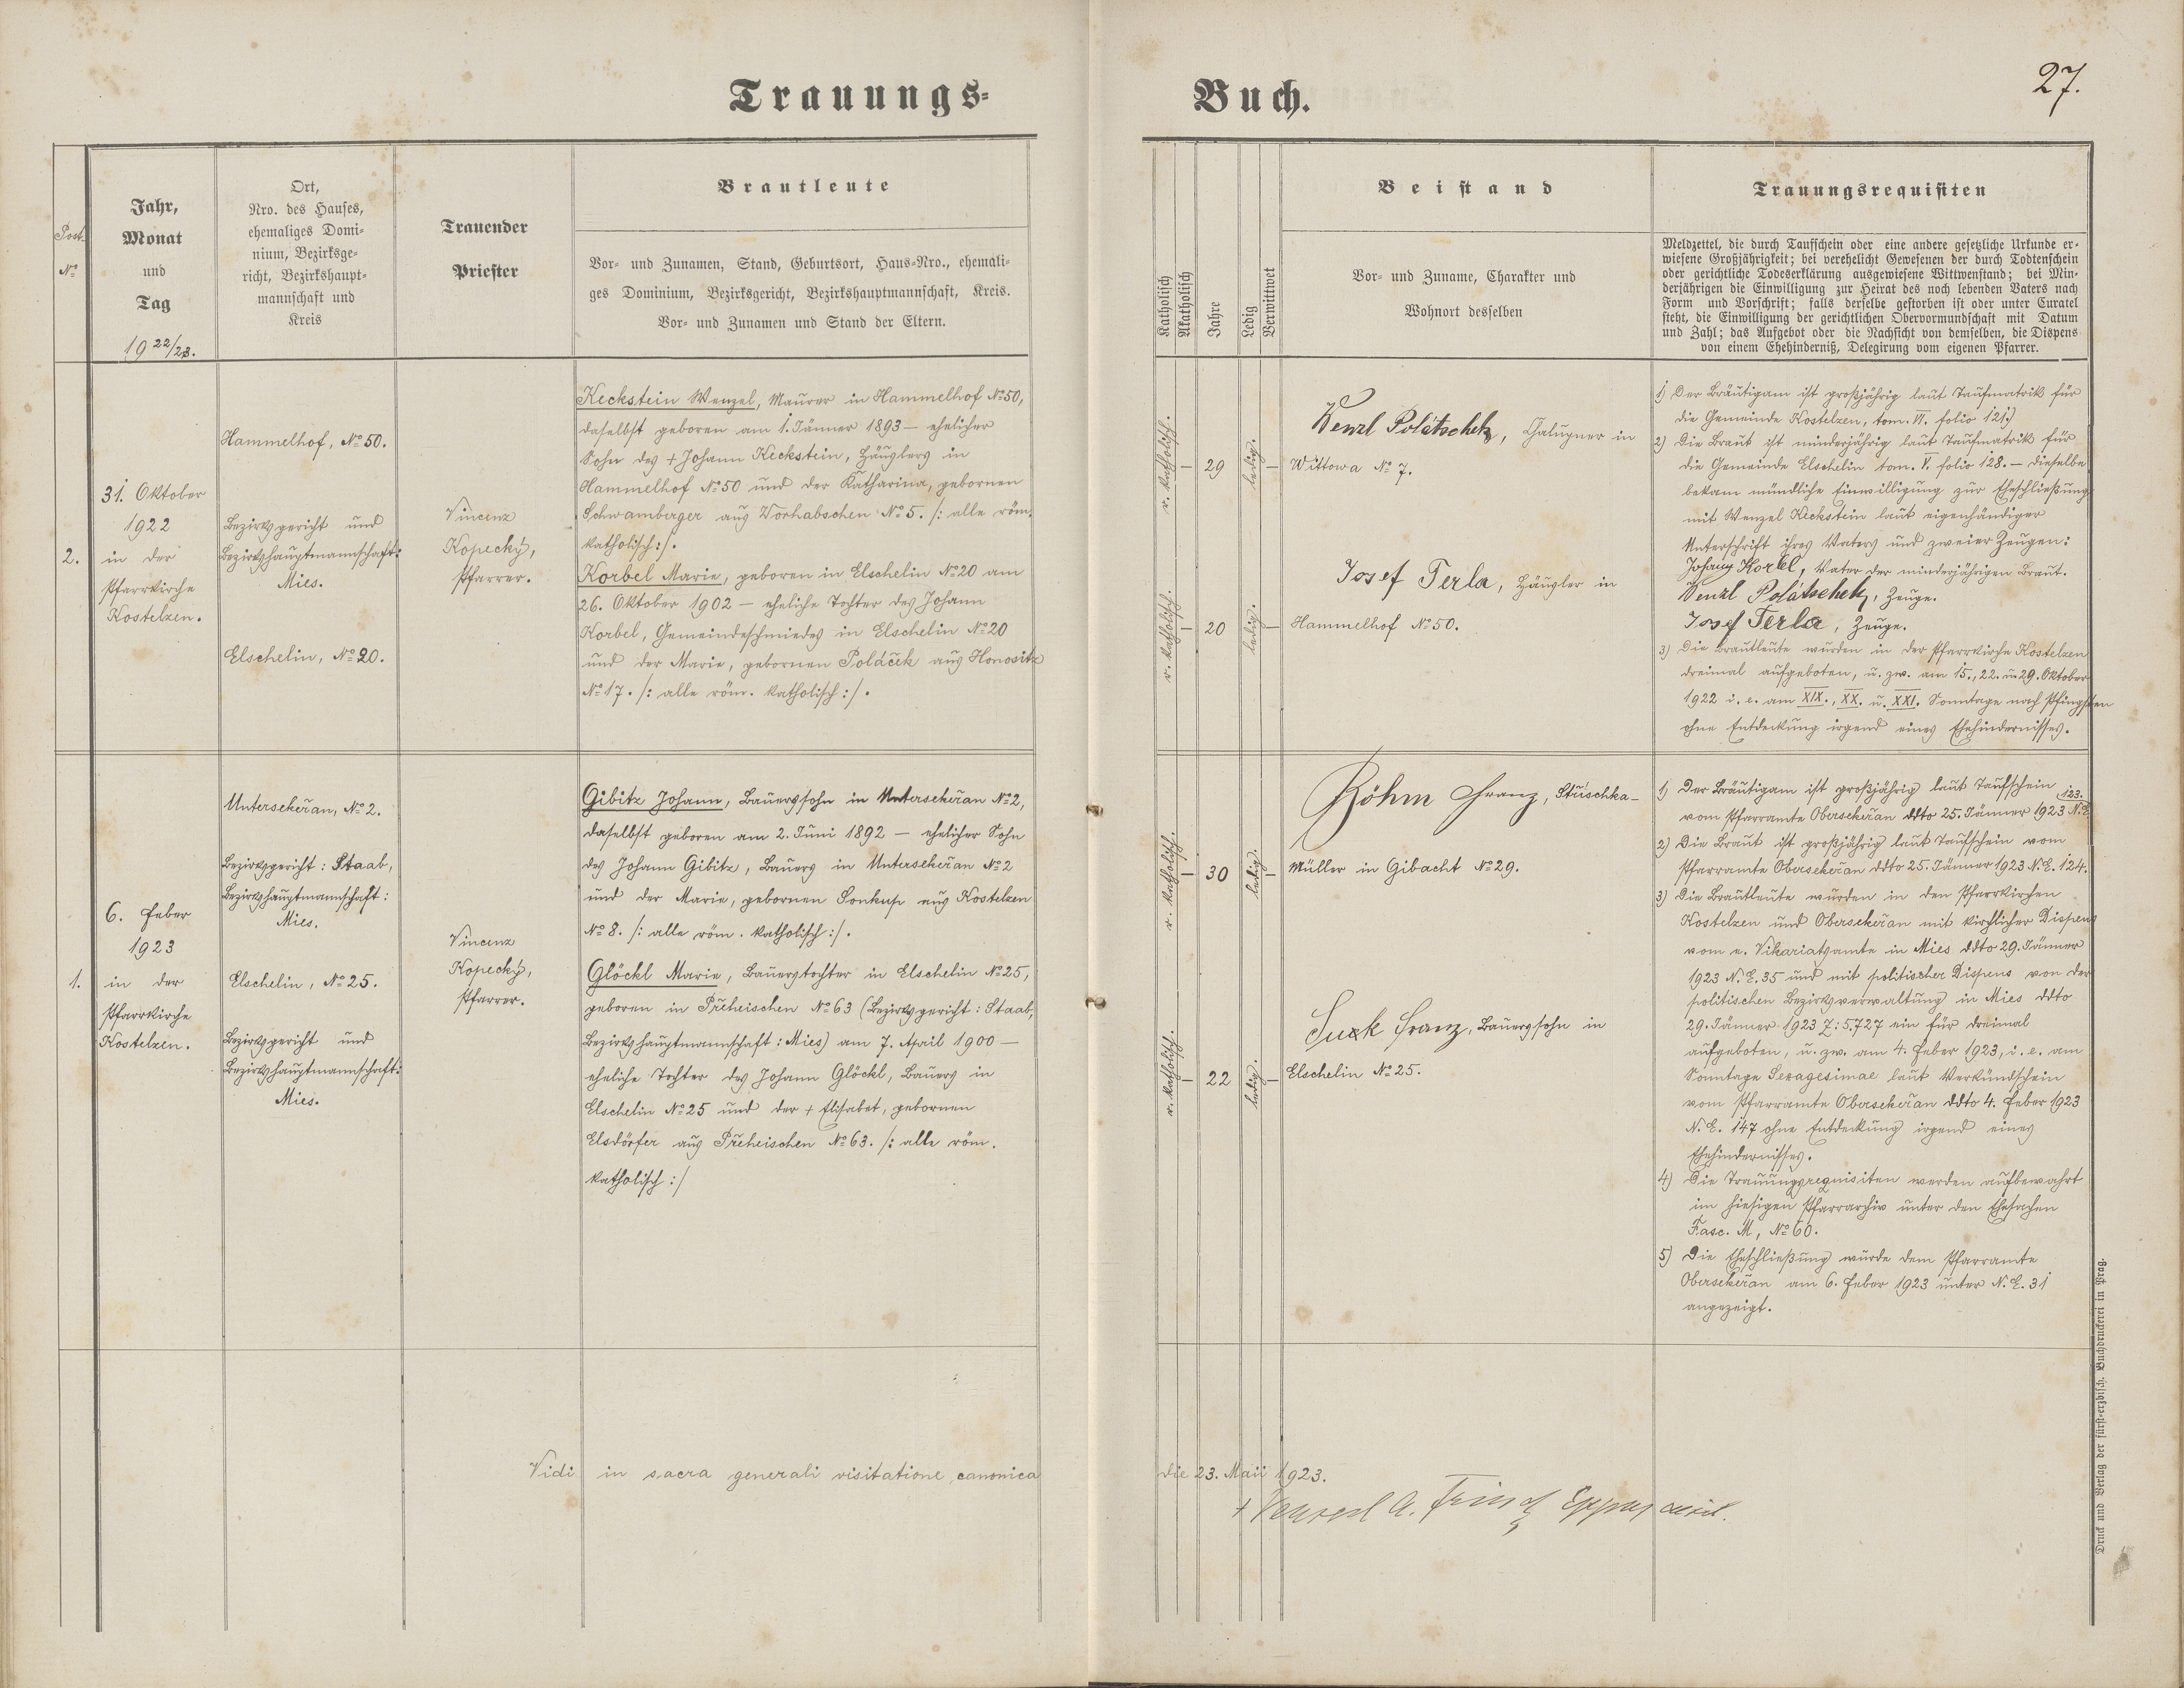 Trauungs-
Buch.
27.
Post
No
Jahr,
Monat
und
Tag
1922/23.
Ort,
Nro. des Hauses,
ehemaliges Domi-
nium, Bezirksge-
richt, Bezirkshaupt-
mannschaft und
Kreis
Trauender
Priester
Brautleute
Vor- und Zunamen, Stand, Geburtsort, Haus-Nro., ehemali-
ges Dominium, Bezirksgericht, Bezirkshauptmannschaft, Kreis.
Vor- und Zunamen und Stand der Eltern.
Katholisch
Akatholisch
Jahre
Ledig
Verwittwet
Beistand
Vor- und Zuname, Charakter und
Wohnort desselben
Trauungsrequisiten
Meldzettel, die durch Taufschein oder eine andere gesetzliche Urkunde er-
wiesene Großjährigkeit; bei verehelicht Gewesenen der durch Todtenschein
oder gerichtliche Todeserklärung ausgewiesene Wittwenstand; bei Min-
derjährigen die Einwilligung zur Heirat des noch lebenden Vaters nach
Form und Vorschrift; falls derselbe gestorben ist oder unter Curatel
steht, die Einwilligung der gerichtlichen Obervormundschaft mit Datum
und Zahl; das Aufgebot oder die Nachsicht von demselben, die Dispens
von einem Ehehinderniß, Delegirung vom eigenen Pfarrer.
2.
31. Oktober
1922
in der
Pfarrkirche
Kostelzen.
Hammelhof, No 50.
Bezirksgericht und
Bezirkshauptmannschaft:
Mies.
Elschelin, No 20.
Vincenz
Kopecký,
Pfarrer.
Keckstein Wenzel, Maurer in Hammelhof No 50,
daselbst geboren am 1. Jänner 1893 — ehelicher
Sohn des + Johann Keckstein, Häuslers in
Hammelhof No 50 und der Katharina, gebornen
Schwamberger aus Worhabschen No 5. /: alle röm.
katholisch :/.
Korbel Marie, geboren in Elschelin No 20 am
26. Oktober 1902 — eheliche Tochter des Johann
Korbel, Gemeindeschmiedes in Elschelin No 20
und der Marie, gebornen Poláček aus Honositz
No 17. /: alle röm. katholisch :/.
r. katholisch.
–
29
ledig.
–
r. katholisch.
–
20
ledig.
–
Wenzl Polátschek, Chalupner in
Wittowa No 7.
Josef Terla, Häusler in
Hammelhof No 50.
1) Der Bräutigam ist großjährig laut Taufmatrik für
die Gemeinde Kostelzen, tom. VI. folio 121.)
2) Die Braut ist minderjährig laut Taufmatrik für
die Gemeinde Elschelin tom. V. folio 128. — dieselbe
bekam mündliche Einwilligung zur Eheschließung
mit Wenzel Keckstein laut eigenhändiger
Unterschrift ihres Vaters und zweier Zeugen:
Johann Korbel, Vater der minderjährigen Braut.
Wenzl Polátschek, Zeuge.
Josef Terla, Zeuge.
3) Die Brautleute wurden in der Pfarrkirche Kostelzen
dreimal aufgeboten, u. zw. am 15., 22. u. 29. Oktober
1922 i. e. am XIX., XX. u. XXI. Sonntage nach Pfingsten
ohne Entdeckung irgend eines Ehehindernisses.
1.
6. Feber
1923
in der
Pfarrkirche
Kostelzen.
Untersekeřan, No 2.
Bezirksgericht: Staab,
Bezirkshauptmannschaft:
Mies.
Elschelin, No 25.
Bezirksgericht und
Bezirkshauptmannschaft:
Mies.
Vincenz
Kopecký,
Pfarrer.
Gibitz Johann, Bauerssohn in Untersekeřan No 2,
daselbst geboren am 2. Juni 1892 — ehelicher Sohn
des Johann Gibitz, Bauers in Untersekeřan No 2
und der Marie, gebornen Sonkup aus Kostelzen
No 8. /: alle röm. katholisch :/.
Glöckl Marie, Bauerstochter in Elschelin No 25,
geboren in Přeheischen No 63 (Bezirksgericht: Staab,
Bezirkshauptmannschaft: Mies) am 7. April 1900 —
eheliche Tochter des Johann Glöckl, Bauers in
Elschelin No 25 und der + Elisabet, gebornen
Elsdörfer aus Přeheischen No 63. /: alle röm.
katholisch :/
r. katholisch.
–
30
ledig.
–
r. katholisch.
–
22
ledig.
–
Böhm Franz, Strischka-
Müller in Gibacht No 29.
Suck Franz, Bauerssohn in
Elschelin No 25.
1) Der Bräutigam ist großjährig laut Taufschein 123.
vom Pfarramte Obersekeřan ddto 25. Jänner 1923 N.E.
2) Die Braut ist großjährig laut Taufschein vom
Pfarramte Obersekeřan ddto 25. Jänner 1923 N.E. 124.
3) Die Brautleute wurden in den Pfarrkirchen
Kostelzen und Obersekeřan mit kirchlicher Dispens
vom e. Vikariatsamte in Mies ddto 29. Jänner
1923 N.E. 35 und mit politischer Dispens von der
politischen Bezirksverwaltung in Mies ddto
29. Jänner 1923 Z: 5.727 ein für dreimal
aufgeboten, u. zw. am 4. Feber 1923, i. e. am
Sonntage Sexagesimae laut Verkündschein
vom Pfarramte Obersekeřan ddto 4. Feber 1923
N.E. 147 ohne Entdeckung irgend eines
Ehehindernisses.
4) Die Trauungsrequisiten werden aufbewahrt
im hiesigen Pfarrarchiv unter den Ehesachen
Fasc. M, No 60.
5) Die Eheschließung wurde dem Pfarramte
Obersekeřan am 6. Feber 1923 unter N.E. 31
angezeigt.
Vidi in sacra generali visitatione canonica
die 23. Maii 1923.
+ A. Frind
Druck und Verlag der fürst-erzbisch. Buchdruckerei in Prag.